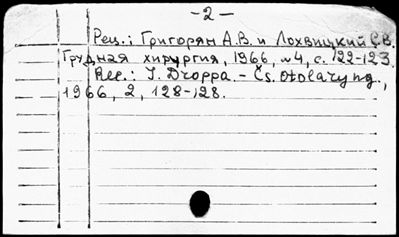 -2-
Рец.: Григорян А.В. и Лохвицкий С.В.
Грудная хирургия, 1966, №4, с. 122-123.
Rec.: J. Droppa. - Čs. otolaryng.,
1966, 2, 128-128.